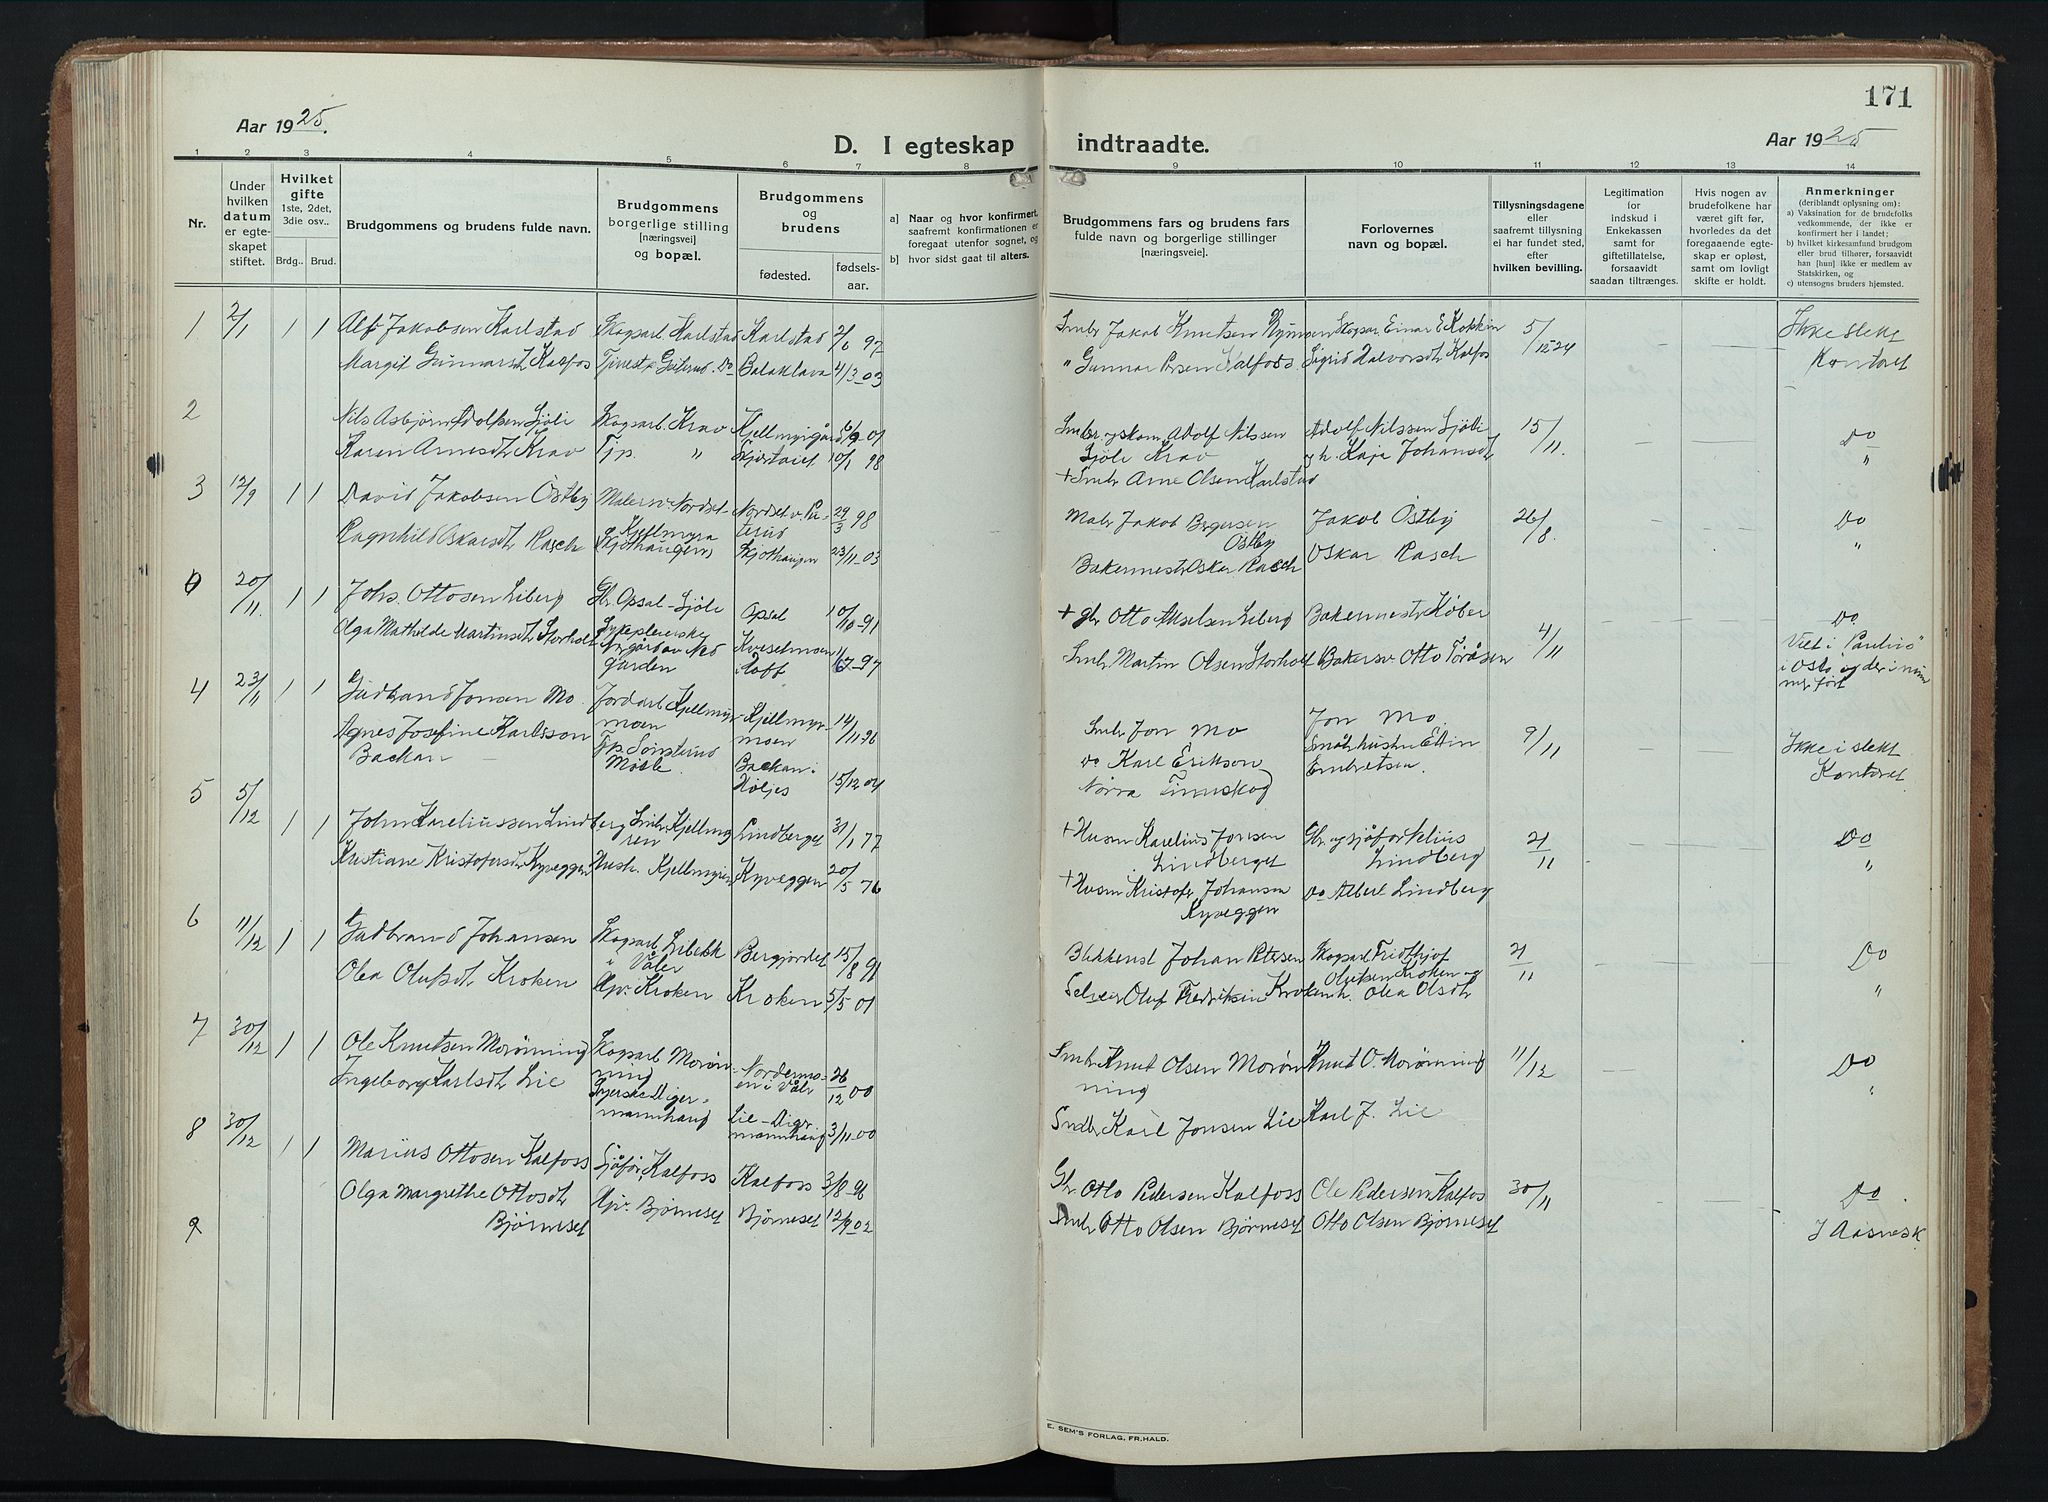 171
Aar 1925.
Aar 1925
D. I egteskap indtraadte.
1 2 3 4 5 6 7 8 9 10 11 12 13 14
Nr.
Under hvilken datum er egteskapet stiftet.
Hvilket gifte 1ste, 2det, 3die osv..
Brdg.. Brud.
Brudgommens og brudens fulde navn.
Brudgommens borgerlige stilling [næringsvei] og bopæl.
Brudgommens og brudens
fødested. fødselsaar.
a) Naar og hvor konfirmert, saafremt konfirmationen er foregaat utenfor sognet, og
b) hvor sidst gaat til alters.
Brudgommens fars og brudens fars fulde navn og borgerlige stillinger [næringsveie].
Forlovernes navn og bopæl.
Tillysningsdagene eller saafremt tillysning ei har fundet sted, efter hvilken bevilling.
Legitimation for indskud i Enkekassen samt for giftetillatelse, forsaavidt saadan tiltrænges.
Hvis nogen av brudefolkene har været gift før, hvorledes da det foregaaende egteskap er opløst, samt om lovligt skifte er holdt.
Anmerkninger (deriblandt oplysning om):
a) Vaksination for de brudefolks vedkommende, der ikke er konfirmert her i landet;
b) hvilket kirkesamfund brudgom eller brud tilhører, forsaavidt han [hun] ikke er medlem av Statskirken, og
c) utensogns bruders hjemsted.
1 2/1 1 1 Alf Jakobsen Karlstad Skogsarb. Karlstad Karlstad 2/6 97 Smbr Jakob Knutsen Skogsar. Einar E Kokkin 5/12 24 — — Ikke slekt
Margit Gunnarsdt Kalfos Do Balaklava 4/3-03 " Gunnar Persen Kalfoss Sigrid Halvorsdt Kalfos Kontoret
2 Nils Asbjørn Adolfsen Sjøli Skogsarb. Krav Kjellmyrgård 6/9-01 Smbr. og skom. Adolf Nilssen Adolf Nilssen Sjøli 15/11. — — Do
Karen Arnesdt Krav Tjp. " 10/1 98 Sjøli Krav og h. Kaja Johansdt "
+ Smbr Arne Olsen Karlstad
3 12/9 1 1 David Jakobsen Østby Malersv. Nordset- Nordset v. Puterud 29/3 98 Maler Jakob Bergersen Østby Jakob Østby 26/8. — — Do
Ragnhild Oskarsdt Rasch Kjellmyra (Skjøthaugen) Skjøthaugen 23/11-03 Bakermestr Oskar Rasch Oskar Rasch "
0 20/11. 1 1 Johs. Ottosen Liberg Gbr Opsal-Sjøli Opsal 10/10-91 + Gbr Otto Akselsen Liberg Bakermestr Køber 4/11 — — Do.
Olga Mathilde Martinsdt Storholt Sykepleierske Kvesetmoen i Hoff -97 Smbr. Martin Olsen Storholt Bakersv Otto Toråsen Viet i "Paulus" i Oslo og der i nummer ført
4 23/11 1 1 Gudbrand Jonsen Mo Jordarb Kjellmyrmoen Kjellmyrmoen 14/11 76 Smbr Jon Mo Jon Mo. 9/11 — — Ikke i slekt
Agnes Josefine Karlsson Backan — Backan i Höljes 15/12 04 Do Karl Erikson Norra Finnskog Embretsen. Kontoret
5 5/12 1 1 John Kareliussen Lindberg Smbr. Kjellmyren Lindberget 31/1 77 + Husm Karelius Jonsen Lindberget Gbr. og sjåfør Nelius Lindberg 21/11 — — Do
Kristiane Kristofersdt Kyveggen Hush. Kjellmyren Kyveggen 20/5 76 + Husm Kristofr Johansen Kyveggen Do Albert Lindberg "
6 11/12 1 1 Gudbrand Johansen Skogsarb Libekk i Våler Bergjordet 15/8 Blikkensl Johan Petersen Skogsarb Fridthjof Olufsen Kroken og 21/11 — — Do
Olea Olufsdt Kroken Hpr. Kroken Kroken 5/5 01 Selveier Oluf Fredriksen Kroken h. Olea Olsdt "
7 30/12 1 1 Ole Knutsen Morønning Skogsarb Morønning Nordermoen i Våler 26/12 00 Smbr Knut Olsen Morønning Knut O. Morønning 11/12 — — Do
Ingeborg Karlsdt Lie Digermannhaug Lie-Digermannhaug 3/11 00 Smbr Karl Jonsen Lie Karl J. Lie "
8 30/12 1 1 Marius Ottosen Kalfoss Sjåfør, Kalfoss Kalfoss 3/8 96 Gbr. Otto Pedersen Kalfoss Ole Pedersen Kalfos 30/11 — — Do
Olga Margrethe Ottosdt Bjørneset Hpr. Bjørneset Bjørneset 12/9 02 Smbr Otto Olsen Bjørneset Otto Olsen Bjørneset I Aasnesk
9
E. SEM'S FORLAG, FR.HALD.